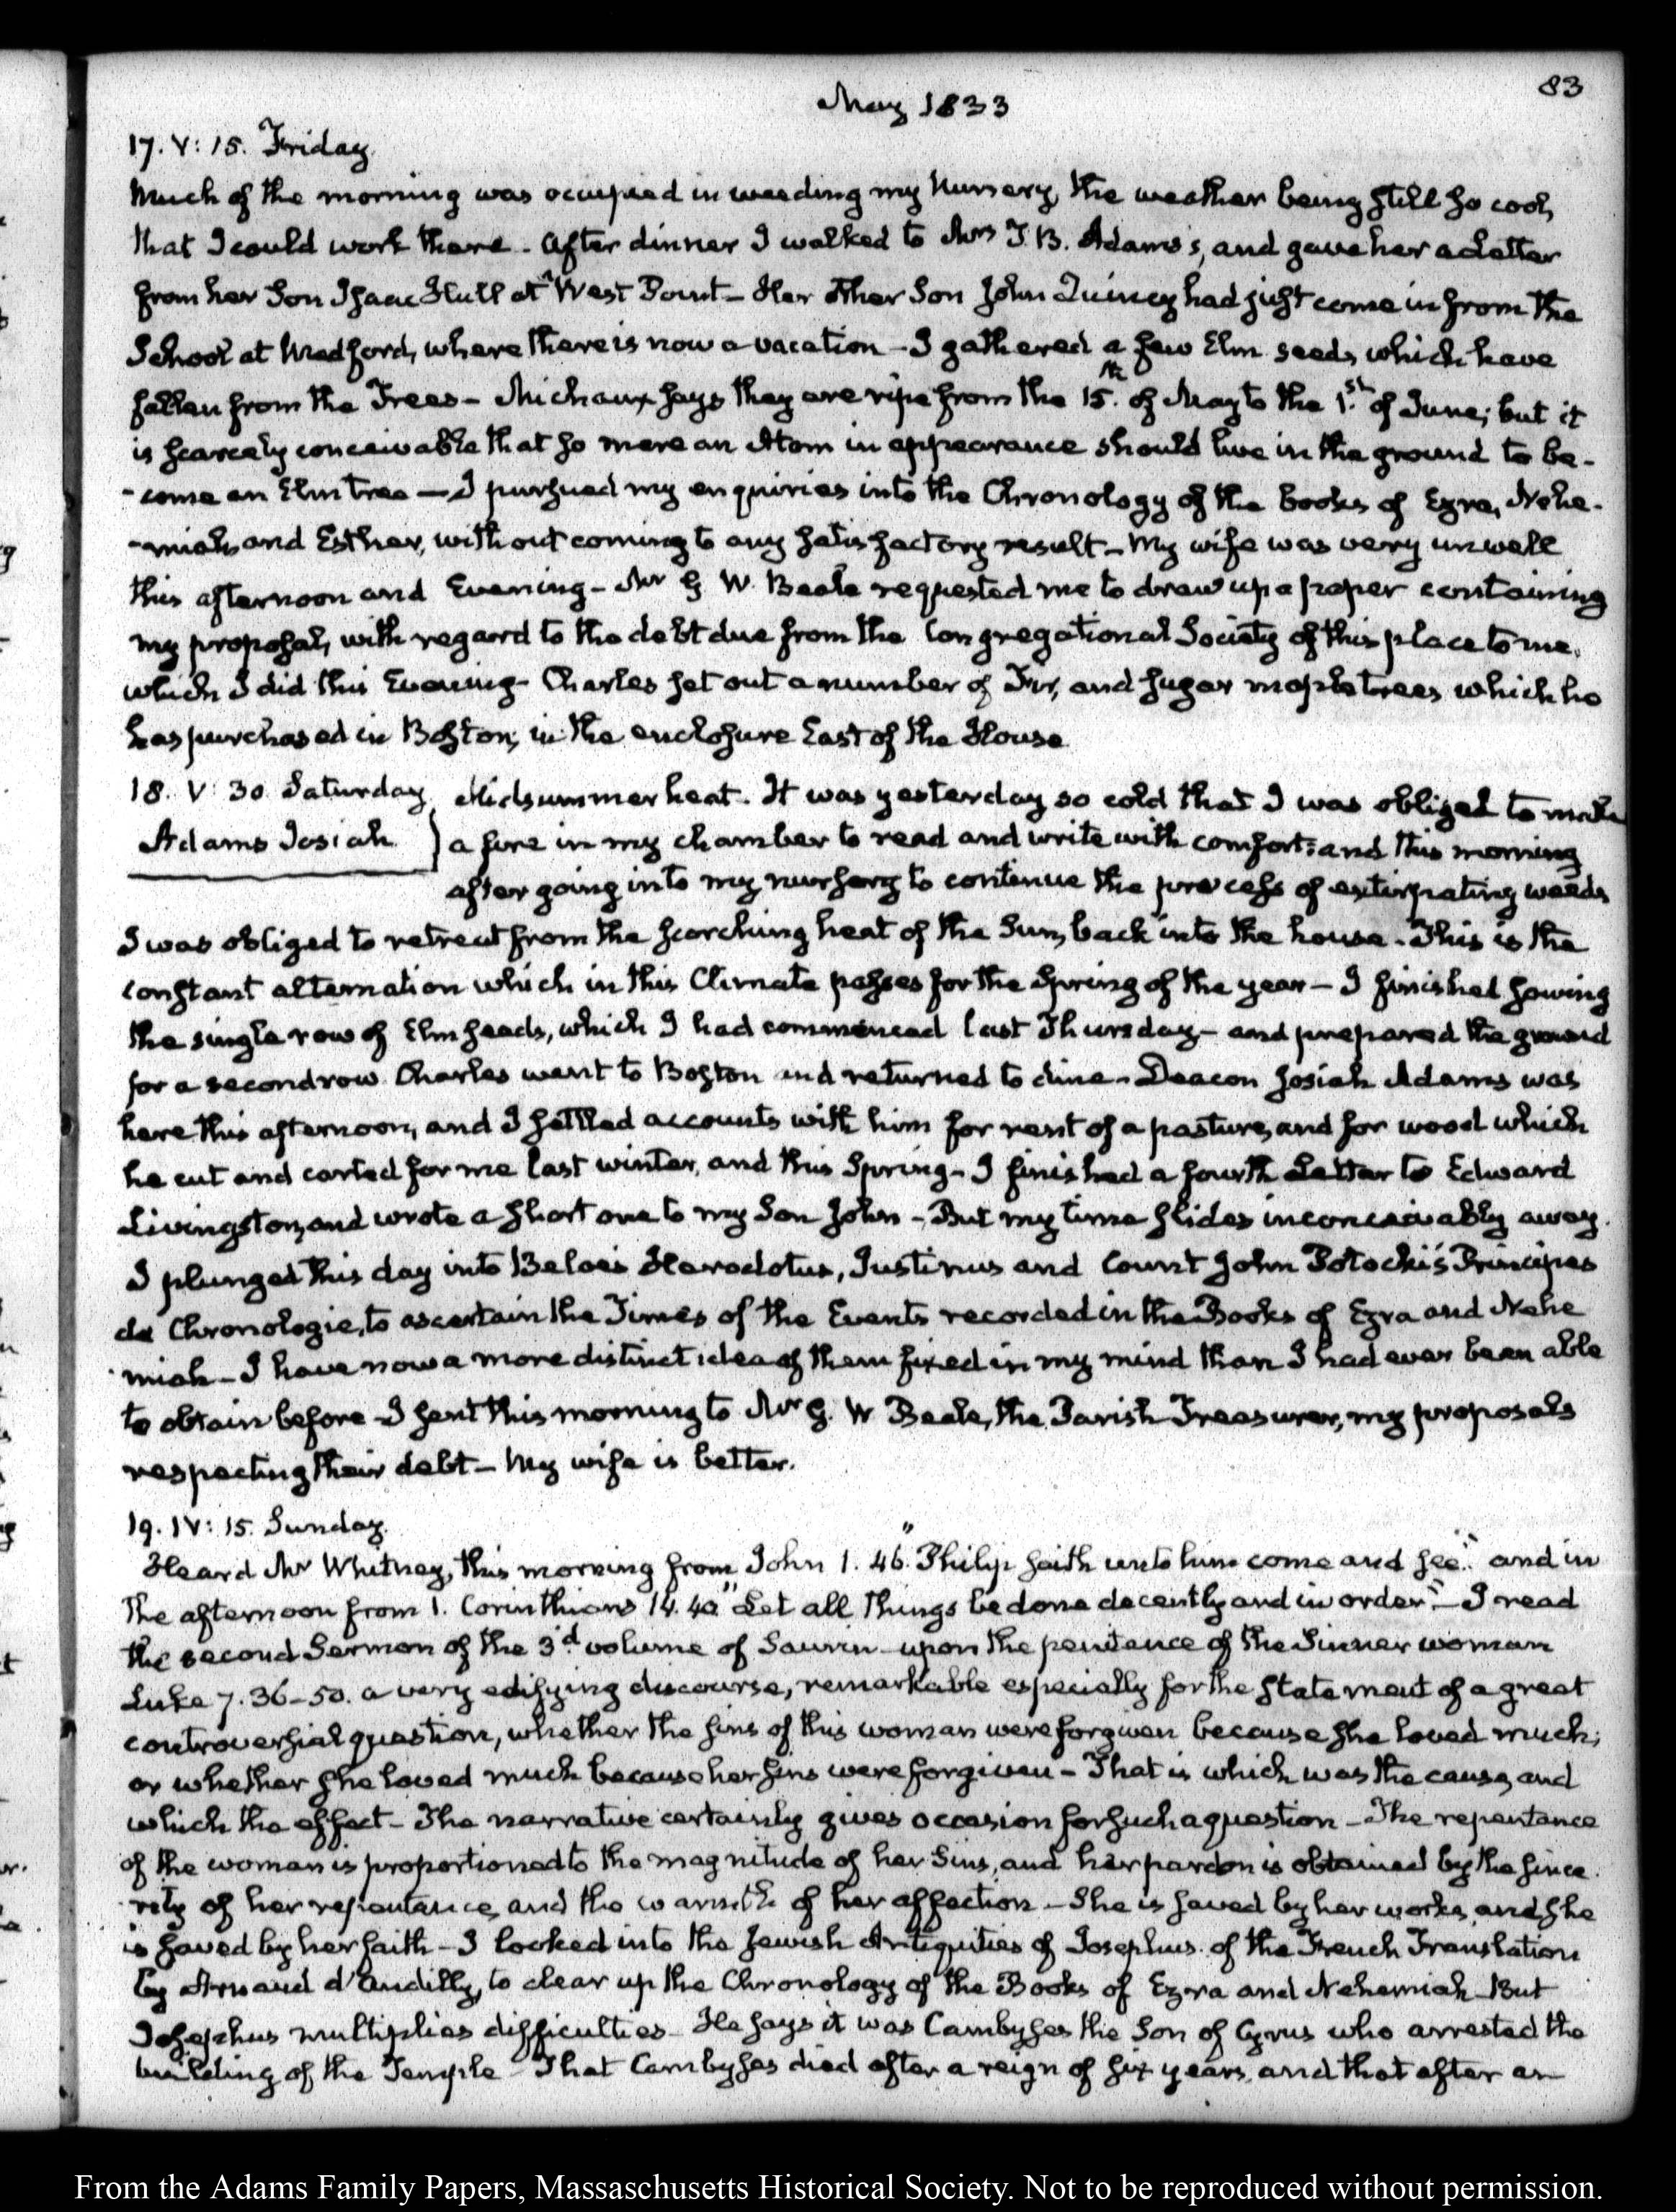 83
May 1833
17. V: 15. Friday.
Much of the morning was occupied in weeding my Nursery, the weather being still so cool,
that I could work there. After dinner I walked to Mrs T. B. Adams's, and gave her a Letter
from her Son Isaac Hull at West Point - Her other Son John Quincy had just come in from the
School at Medford, where there is now a vacation - I gathered a few Elm seeds, which have
fallen from the Trees - Michaux says they are ripe from the 15th. of May to the 1st. of June; but it
is scarcely conceivable that so mere an Atom in appearance should live in the ground to be-
-come an Elm tree — I pursued my enquiries into the Chronology of the books of Ezra, Nehe-
-miah and Esther, without coming to any satisfactory result - My wife was very unwell
this afternoon and Evening - Mr G W. Beale requested me to draw up a paper containing
my proposal, with regard to the debt due from the Congregational Society of this place to me,
which I did this Evening - Charles set out a number of Fir, and sugar maple trees which he
has purchased in Boston, in the enclosure East of the House
18. V: 30. Saturday, Midsummer heat. It was yesterday so cold that I was obliged to make
Adams Josiah } a fire in my chamber to read and write with comfort; and this morning
after going into my nursery to continue the process of extirpating weeds
I was obliged to retreat from the scorching heat of the Sun, back into the house. This is the
constant alternation which in this Climate passes for the Spring of the year - I finished sowing
the single row of Elm seeds, which I had commenced last Thursday - and prepared the ground
for a second row. Charles went to Boston and returned to dine - Deacon Josiah Adams was
here this afternoon, and I settled accounts with him for rent of a pasture, and for wood which
he cut and carted for me last winter, and this Spring - I finished a fourth Letter to Edward
Livingston, and wrote a short one to my Son John - But my time slides inconceivably away.
I plunged this day into Beloe's Herodotus, Justinus and Count John Potocki's Principes
de Chronologie, to ascertain the Times of the Events recorded in the Books of Ezra and Nehe
-miah - I have now a more distinct idea of them fixed in my mind than I had ever been able
to obtain before - I sent this morning to Mr G. W Beale, the Parish Treasurer, my proposals
respecting their debt - My wife is better.
19. IV: 15. Sunday.
Heard Mr Whitney, this morning from John 1. 46. "Philip saith unto him come and see." and in
the afternoon from 1. Corinthians 14. 40 "Let all things be done decently and in order" - I read
the second Sermon of the 3d volume of Saurin - upon the penitence of the Sinner woman
Luke 7. 36-50. a very edifying discourse, remarkable especially for the statement of a great
controversial question, whether the sins of this woman were forgiven because she loved much;
or whether she loved much because her sins were forgiven - That is which was the cause, and
which the effect - The narrative certainly gives occasion for such a question - The repentance
of the woman is proportioned to the magnitude of her Sins, and her pardon is obtained by the since
-rity of her repentance, and the warmth of her affection - She is saved by her works, and she
is saved by her faith - I looked into the Jewish Antiquities of Josephus. of the French Translation
by Arnaud d'Andilly, to clear up the Chronology of the Books of Ezra and Nehemiah. But
Josephus multiplies difficulties - He says it was Cambyses the Son of Cyrus who arrested the
building of the Temple - That Cambyses died after a reign of six years, and that after an
From the Adams Family Papers, Massachusetts Historical Society. Not to be reproduced without permission.